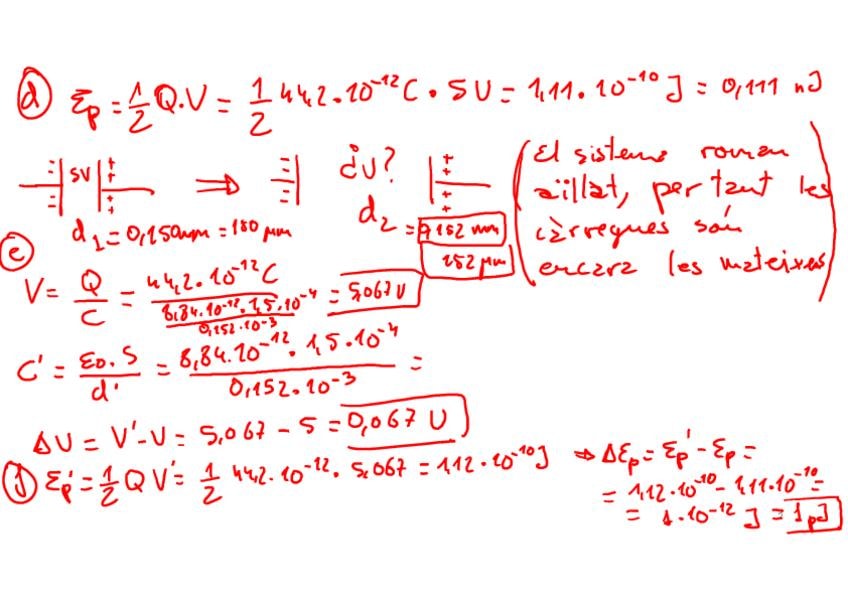 d) Ep = 1/2 Q.V = 1/2 44,2.10^-12 C . 5V = 1,11.10^-10 J = 0,111 nJ
5V ⇒ ¿V?
d1 = 0,150mm = 150 μm d2 = 0,152 mm
152 μm
(El sistema roman
aïllat, per tant les
càrregues són
encara les mateixes)
e) V = Q/C = 44,2.10^-12 C / (8,84.10^-12 . 1,5.10^-4 / 0,152.10^-3) = 5,067 V
C' = ε0.S/d' = 8,84.10^-12 . 1,5.10^-4 / 0,152.10^-3 =
ΔV = V'-V = 5,067 - 5 = 0,067 V
f) Ep' = 1/2 Q V' = 1/2 44,2.10^-12 . 5,067 = 1,12.10^-10 J ⇒ ΔEp = Ep' - Ep =
= 1,12.10^-10 - 1,11.10^-10 =
= 1.10^-12 J = 1 pJ